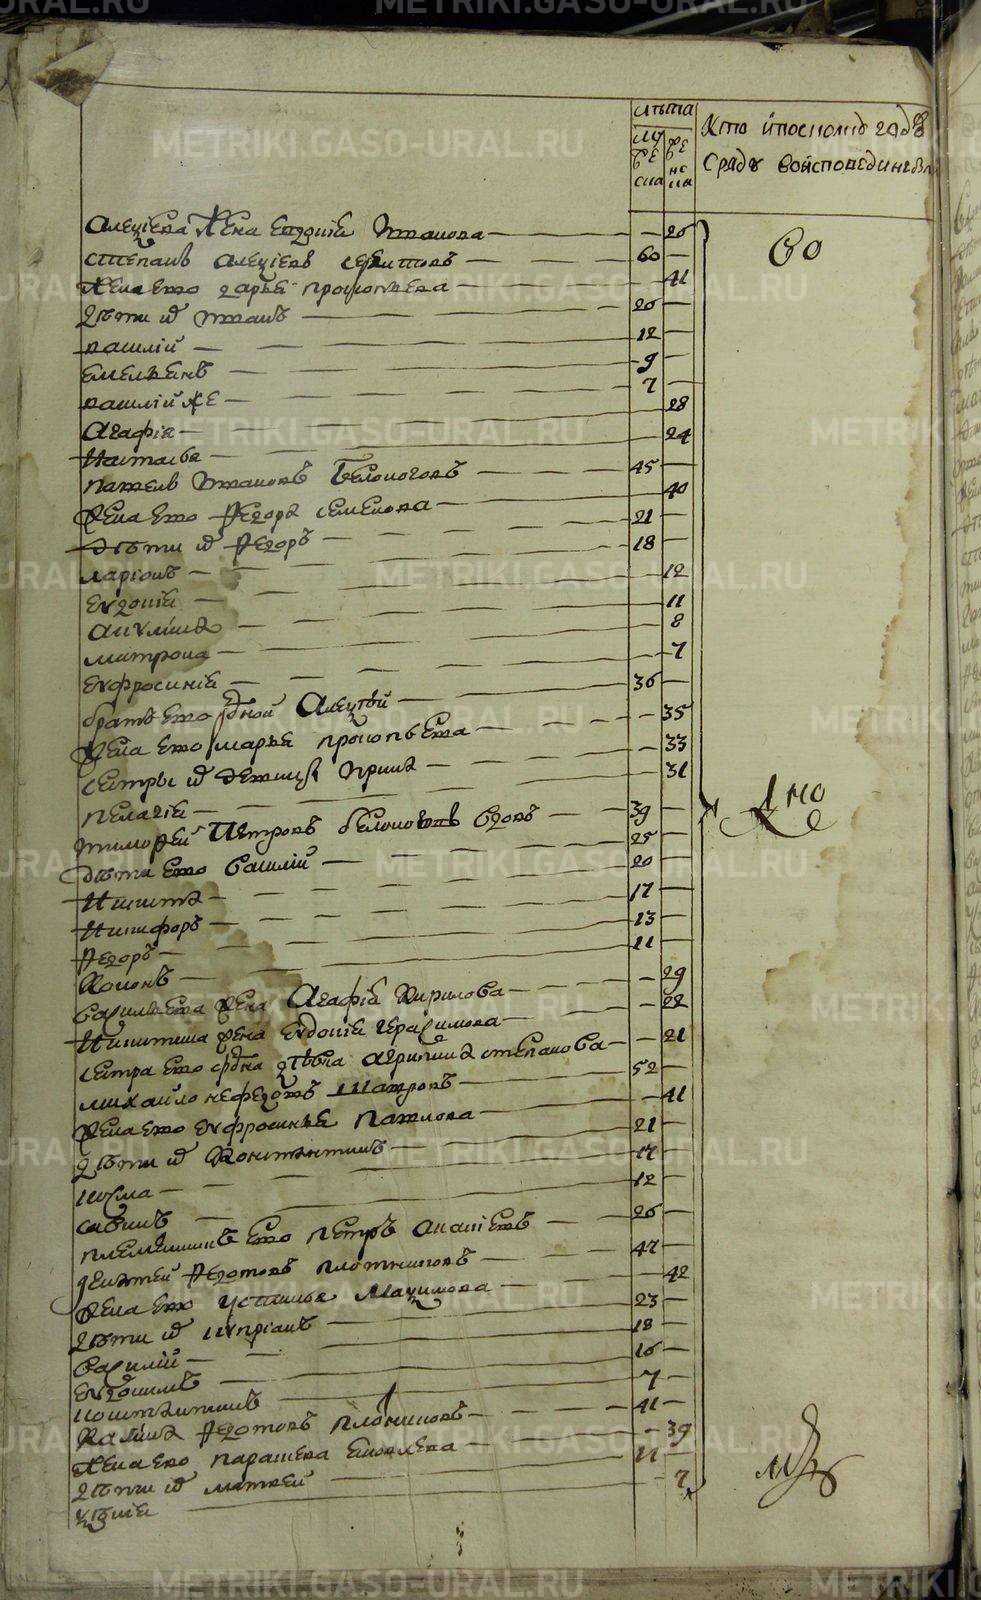 METRIKI.GASO-URAL.RU
лѣта
муж ска
жен ска
Кто и по сколко годов
Сряду во исповеди не был
Алеѯиева жена Евдокия Иванова 26
Степанъ Алеѯиевъ 60
Жена его Дарья Прокопьева 41
Дѣти их Иванъ 20
Василий 12
Емельянъ 9
Василий же 7
Агафия 28
Настасья 24
Павелъ Ивановъ Белоноговъ 45
Жена его Федора Семенова 40
Дѣти их Федоръ 21
Ларионъ 18
Евдокия 12
Акулина 11
Матрона 8
Евфросиния 7
братъ его родной Алеѯѣй 36
Жена его Марья Прокопьева 35
сестры их девицы Ирина 33
Пелагия 31
Тимофей Петровъ Белоноговъ вдовъ 39
Дѣти его Василий 25
Никита 20
Никифоръ 17
Федоръ 13
Кононъ 11
Васильева жена Агафия Кирилова 29
Никитина жена Евдокия Герасимова 22
сестра его родная дѣвка Агрипина Степанова 21
Михайло Нефедовъ Шатровъ 52
Жена его Евфросинья Павлова 41
Дѣти их Константинъ 21
Козма 17
Савинъ 12
племянникъ его Петръ Ананиевъ 26
Федотовъ Плотниковъ 47
Жена его Устинья Маѯимова 42
Дѣти их Куприанъ 23
Василий 18
Евдокимъ 16
Константинъ 7
Калина Федотовъ Плотниковъ 41
Жена его Парасева Яковлева 39
Дѣти их Матвей 11
7
во